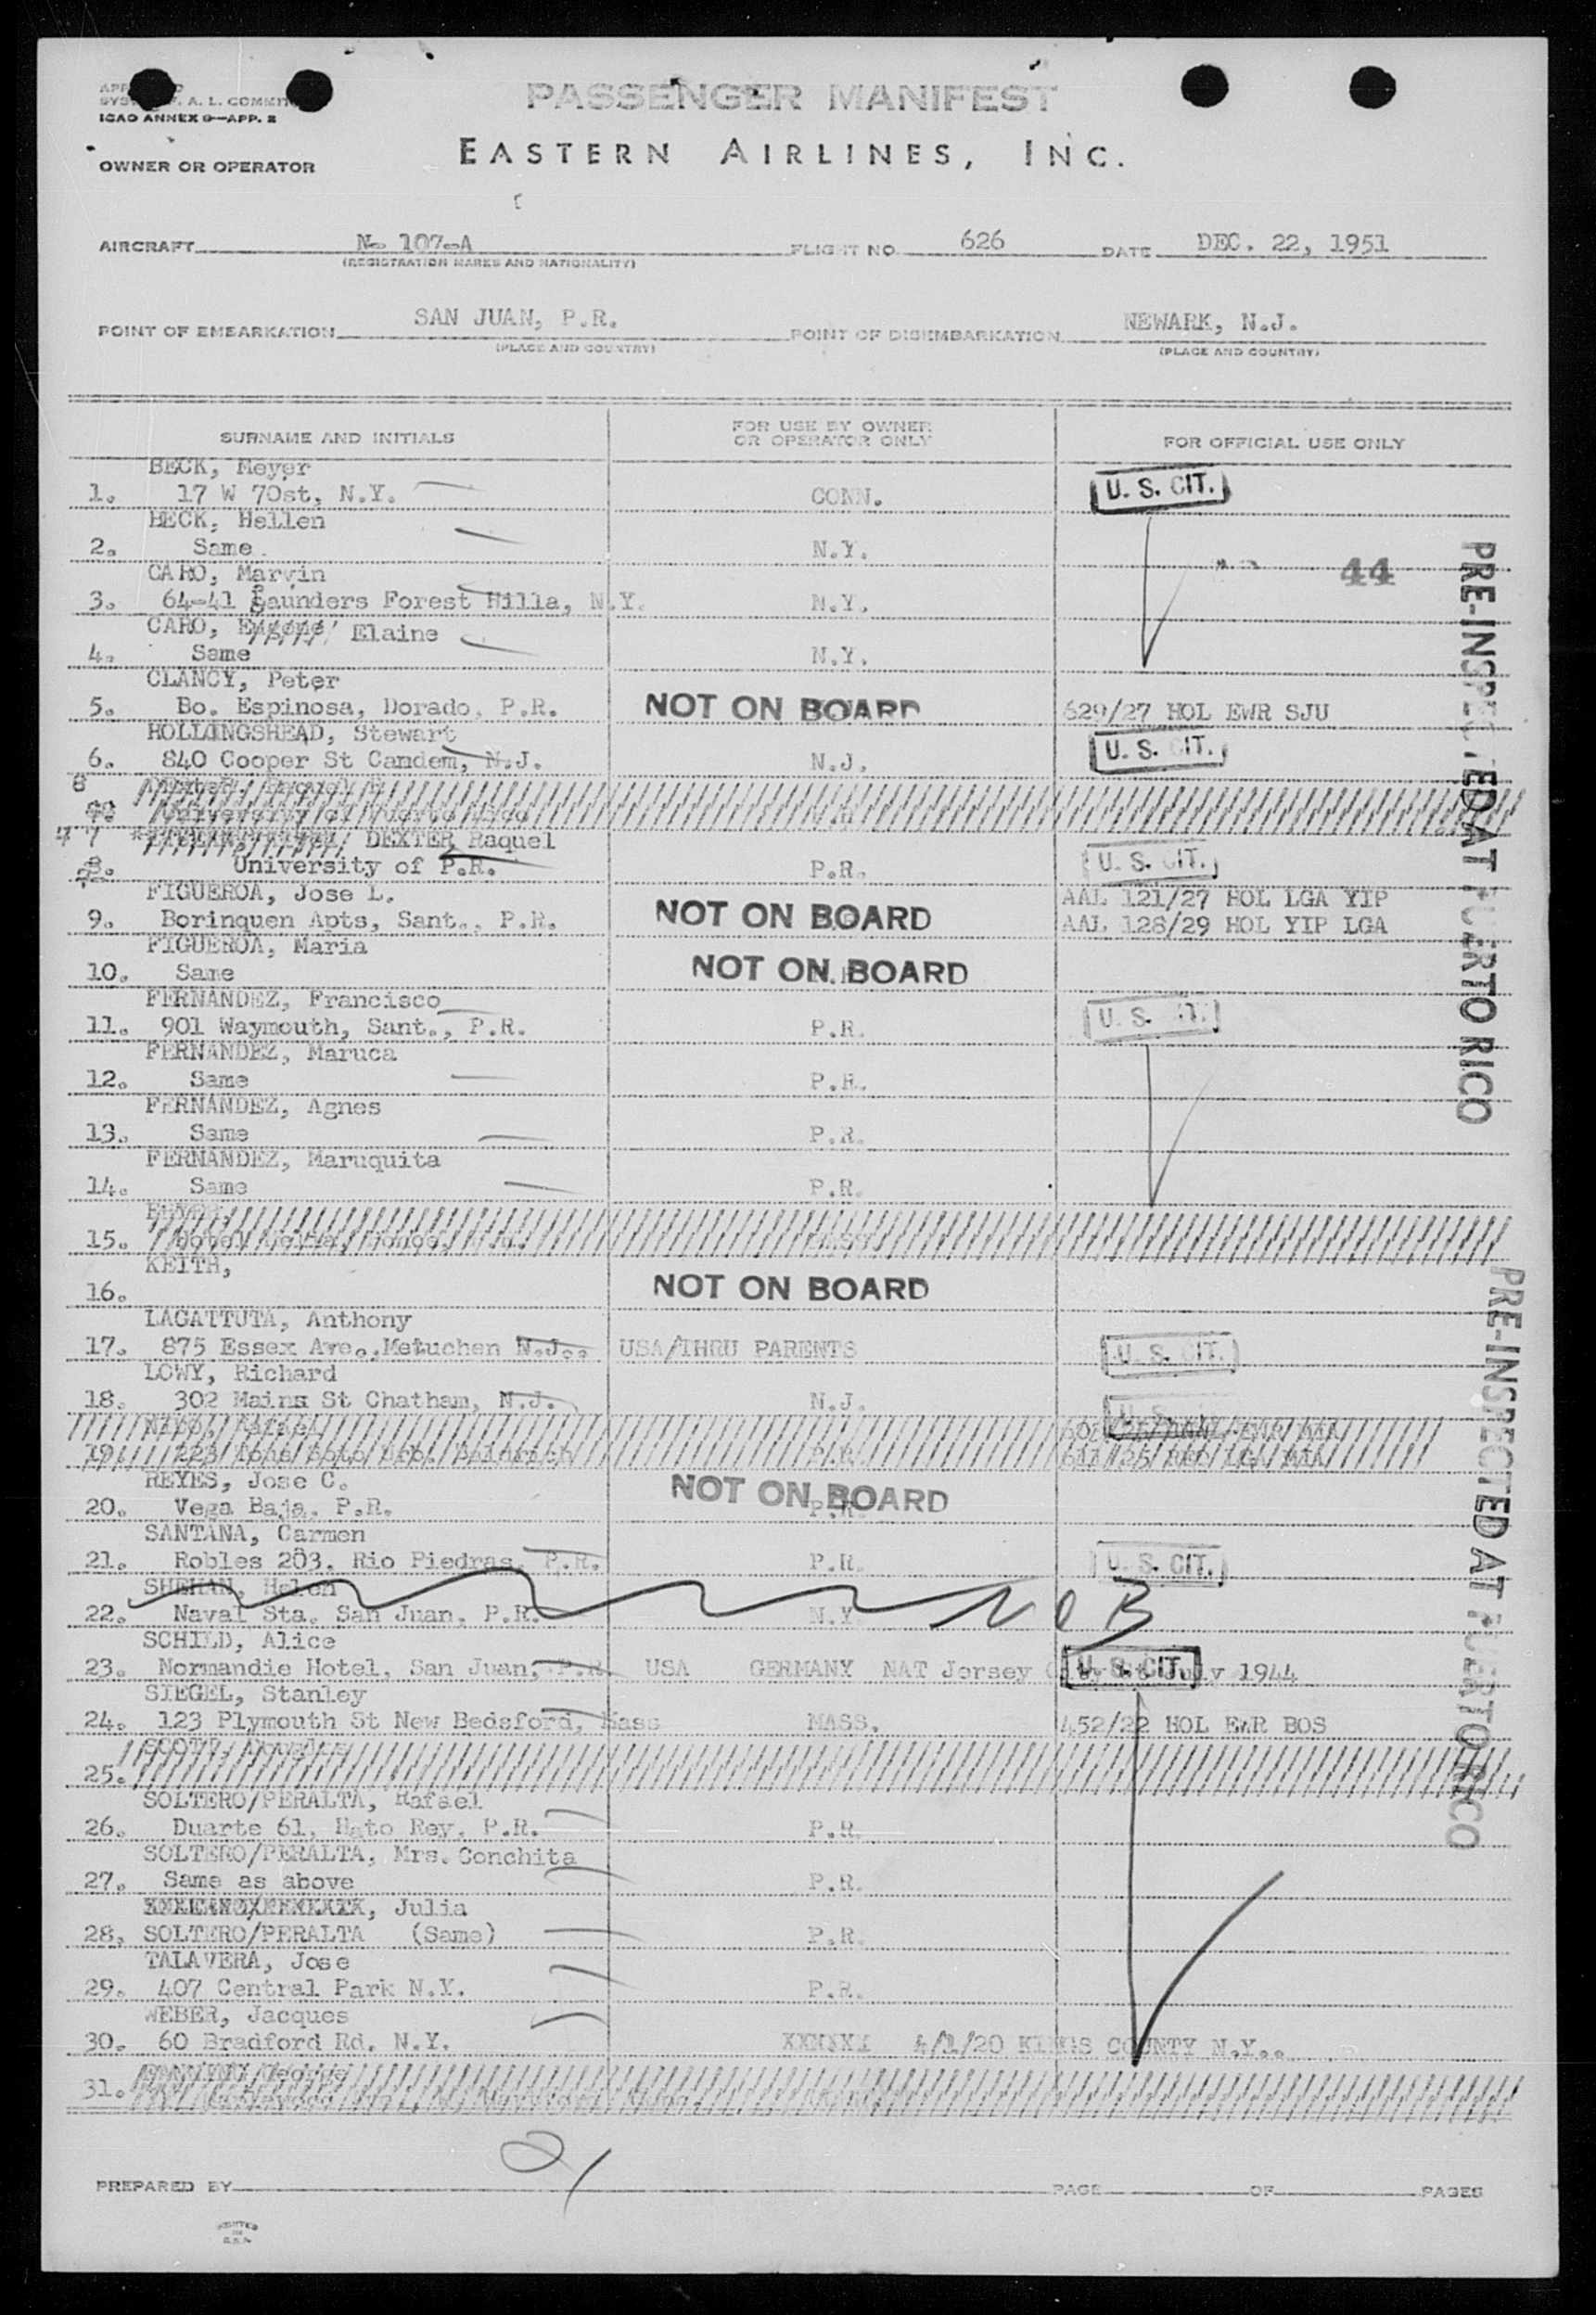 PASSENGER MANIFEST
A. L.
ICAO ANNEX 9—APP. 2
EASTERN AIRLINES, INC.
OWNER OR OPERATOR
AIRCRAFT N- 107-A FLIGHT NO. 626 DATE DEC. 22, 1951
(REGISTRATION MARKS AND NATIONALITY)
POINT OF EMBARKATION SAN JUAN, P.R. POINT OF DISEMBARKATION NEWARK, N.J.
(PLACE AND COUNTRY) (PLACE AND COUNTRY)
SURNAME AND INITIALS FOR USE BY OWNER OR OPERATOR ONLY FOR OFFICIAL USE ONLY
BECK, Meyer
1. 17 W 70st, N.Y. CONN. U. S. CIT.
BECK, Hellen
2. Same N.Y.
CARO, Marvin 44
3. 64-41 Saunders Forest Hilla, N.Y. N.Y.
CARO, Eugene Elaine
4. Same N.Y.
CLANCY, Peter
5. Bo. Espinosa, Dorado, P.R. NOT ON BOARD 629/27 HOL EWR SJU
HOLLINGSHEAD, Stewart
6. 840 Cooper St Camdem, N.J. N.J. U. S. CIT.
8
University of Puerto Rico
7 DEXTER Raquel
8. University of P.R. P.R. U. S. CIT.
FIGUEROA, Jose L. AAL 121/27 HOL LGA YIP
9. Borinquen Apts, Sant., P.R. NOT ON BOARD AAL 128/29 HOL YIP LGA
FIGUEROA, Maria
10. Same NOT ON BOARD
FERNANDEZ, Francisco
11. 901 Waymouth, Sant., P.R. P.R. U. S. CIT.
FERNANDEZ, Maruca
12. Same P.R.
FERNANDEZ, Agnes
13. Same P.R.
FERNANDEZ, Maruquita
14. Same P.R.
15.
KEITH,
16. NOT ON BOARD
LAGATTUTA, Anthony
17. 875 Essex Ave., Metuchen N.J. USA/THRU PARENTS U. S. CIT.
LOWY, Richard
18. 302 Mains St Chatham, N.J. N.J. U. S.
19. P.R.
REYES, Jose C.
20. Vega Baja, P.R. NOT ON BOARD P.R.
SANTANA, Carmen
21. Robles 203, Rio Piedras, P.R. P.R. U. S. CIT.
SHEHAN, Helen
22. Naval Sta. San Juan, P.R. N.Y. NOB
SCHILD, Alice
23. Normandie Hotel, San Juan, P.R. USA GERMANY NAT Jersey July 1944 U. S. CIT.
SIEGEL, Stanley
24. 123 Plymouth St New Bedsford, Mass MASS. 452/22 HOL EWR BOS
25.
SOLTERO/PERALTA, Rafael
26. Duarte 61, Hato Rey, P.R. P.R.
SOLTERO/PERALTA, Mrs. Conchita
27. Same as above P.R.
Julia
28. SOLTERO/PERALTA (Same) P.R.
TALAVERA, Jose
29. 407 Central Park N.Y. P.R.
WEBER, Jacques
30. 60 Bradford Rd, N.Y. 4/1/20 KINGS COUNTY N.Y..
31.
21
PREPARED BY PAGE OF PAGES
PRE-INSPECTED AT PUERTO RICO
PRE-INSPECTED AT PUERTO RICO